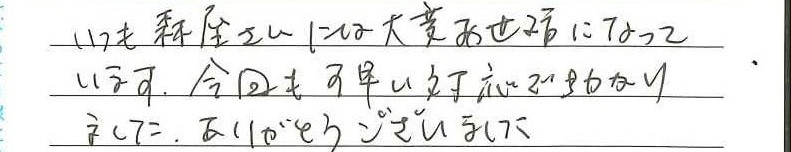 いつも森屋さんには大変お世話になって
います。今回も素早い対応で助かり
ました。ありがとうございました